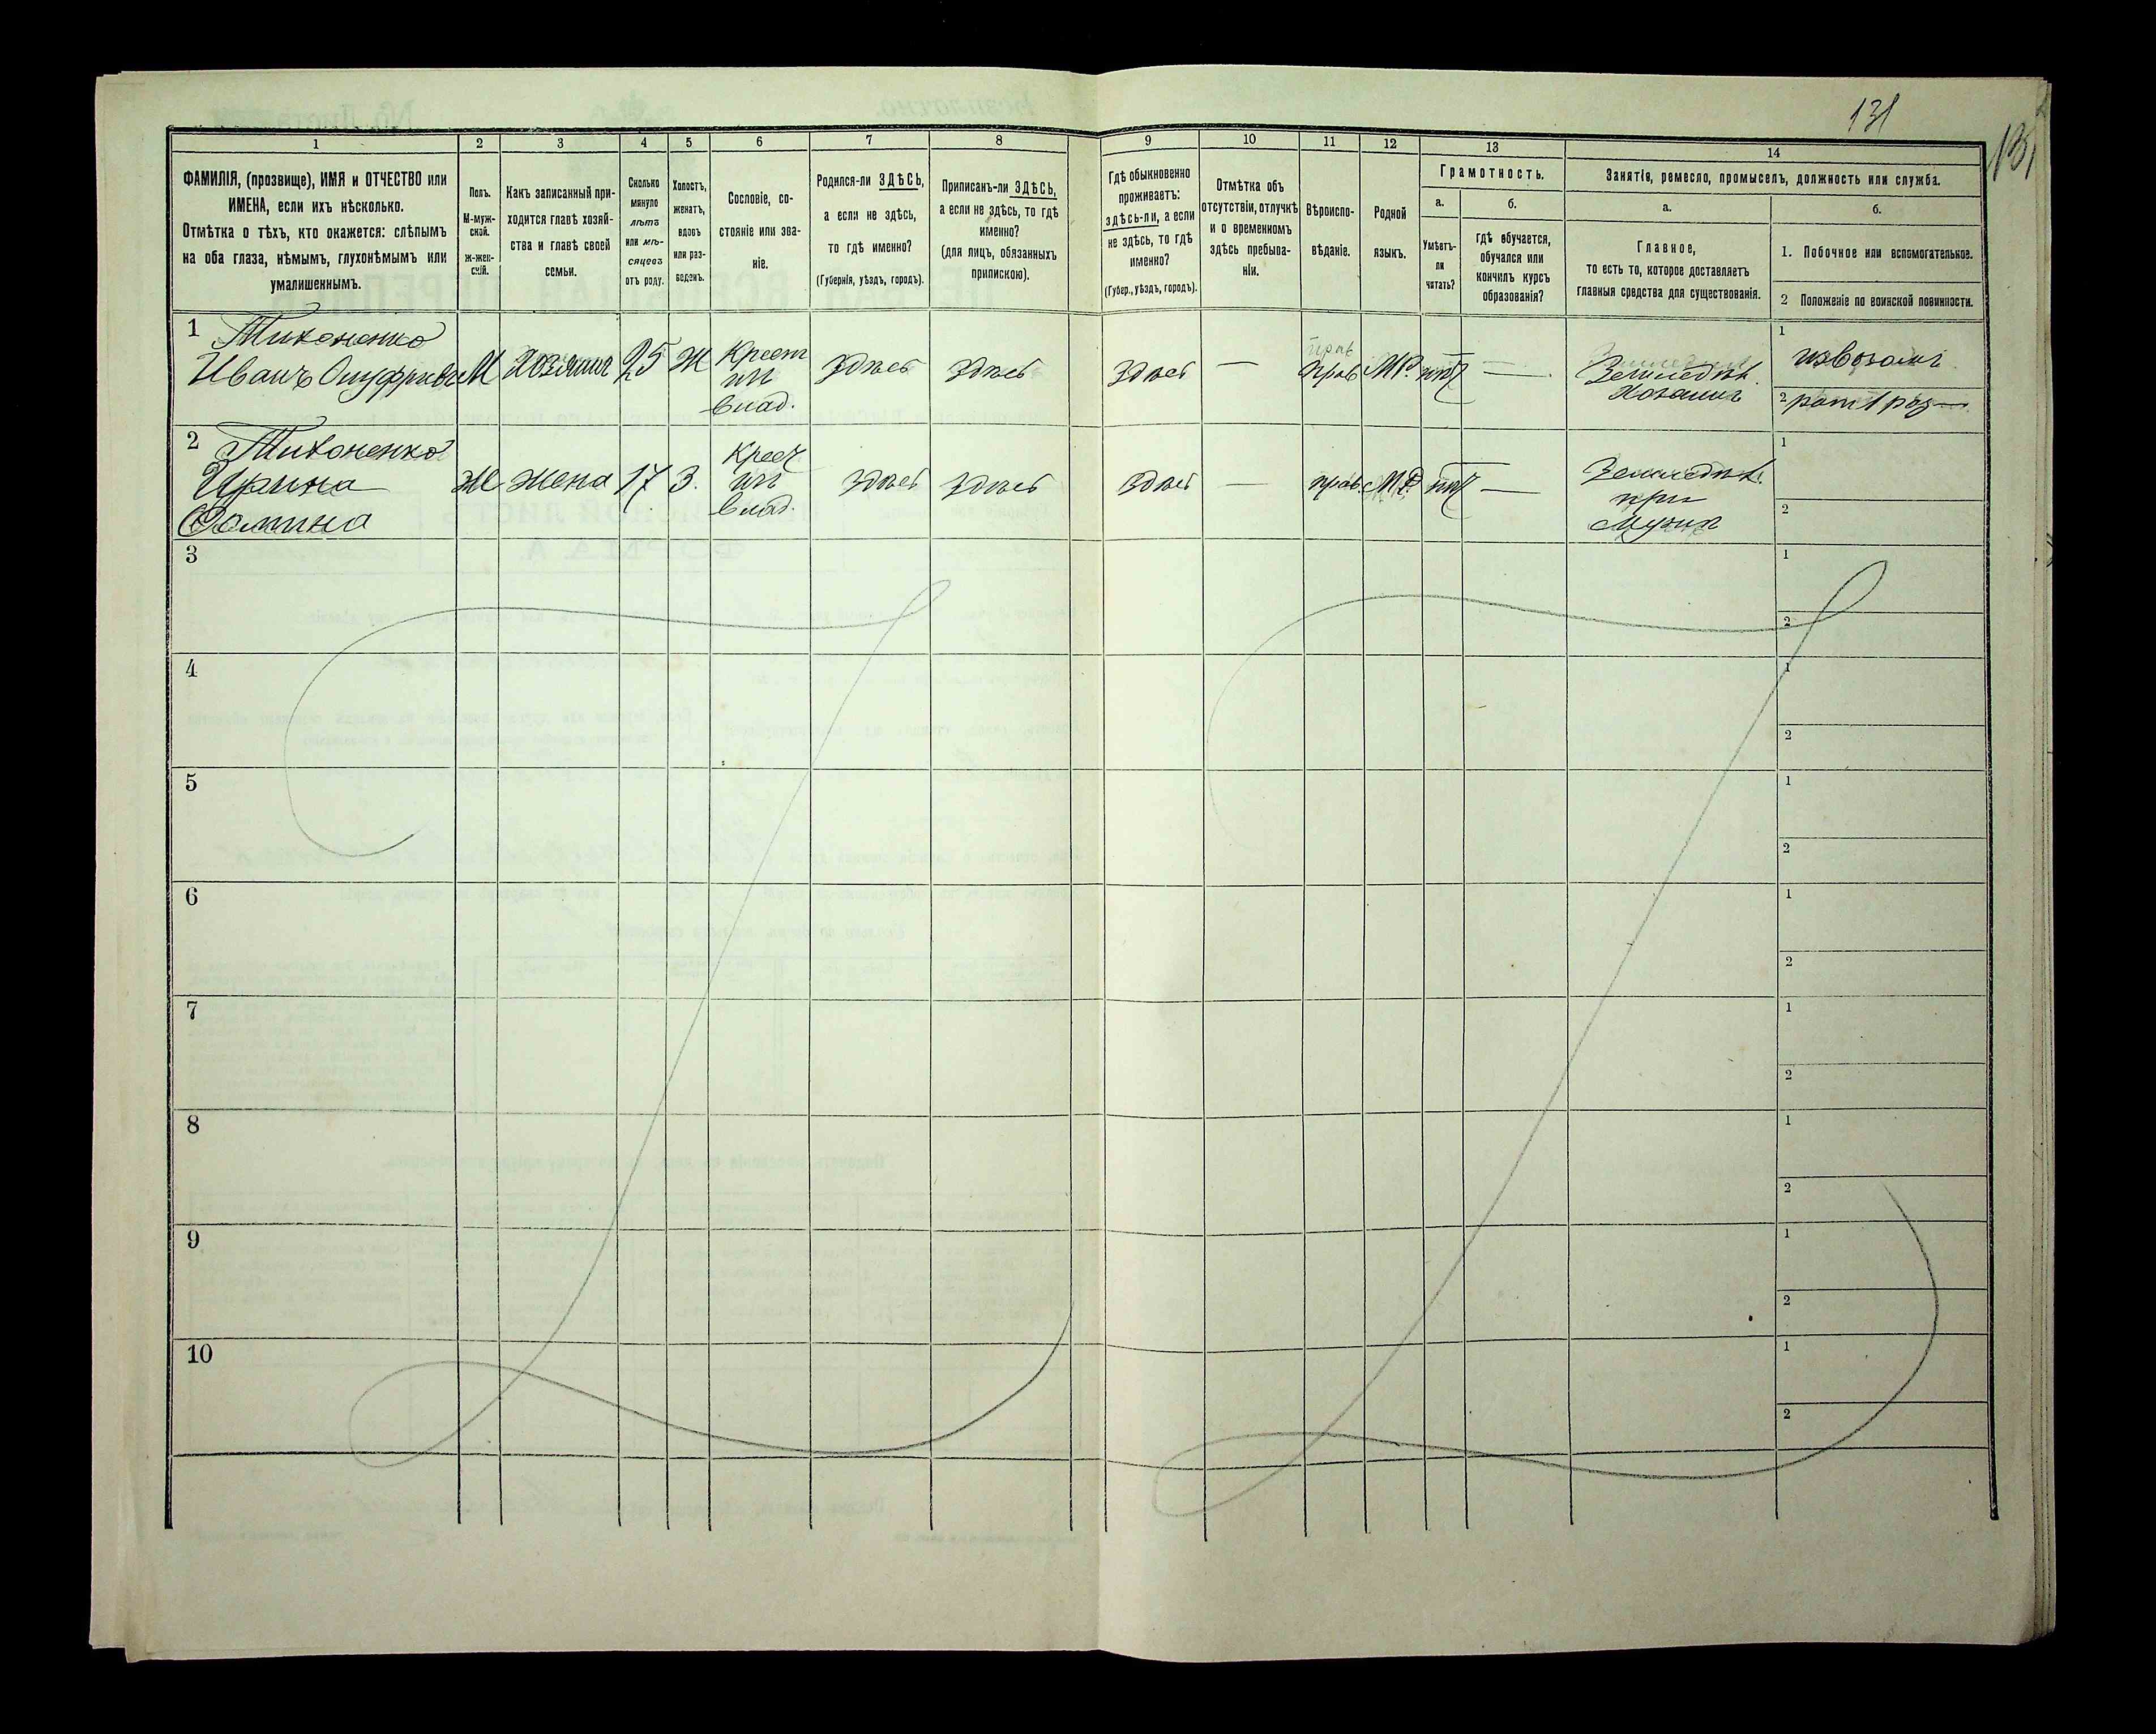 131
131
1 2 3 4 5 6 7 8 9 10 11 12 13 14
ФАМИЛІЯ, (прозвище), ИМЯ и ОТЧЕСТВО или
ИМЕНА, если ихъ нѣсколько.
Отмѣтка о тѣхъ, кто окажется: слѣпымъ
на оба глаза, нѣмымъ, глухонѣмымъ или
умалишеннымъ.
Полъ.
М-муж-
ской.
ж-жен-
скій.
Какъ записанный при-
ходится главѣ хозяй-
ства и главѣ своей
семьи.
Сколько
минуло
лѣтъ
или мѣ-
сяцевъ
отъ роду.
Холостъ,
женатъ,
вдовъ
или раз-
веденъ.
Сословіе, со-
стояніе или зва-
ніе.
Родился-ли ЗДѢСЬ,
а если не здѣсь,
то гдѣ именно?
(Губернія, уѣздъ, городъ).
Приписанъ-ли ЗДѢСЬ,
а если не здѣсь, то гдѣ
именно?
(для лицъ, обязанныхъ
припискою).
Гдѣ обыкновенно
проживаетъ:
здѣсь-ли, а если
не здѣсь, то гдѣ
именно?
(Губер., уѣздъ, городъ).
Отмѣтка объ
отсутствіи, отлучкѣ
и о временномъ
здѣсь пребыва-
ніи.
Вѣроиспо-
вѣданіе.
Родной
языкъ.
Грамотность.
а.
Умѣетъ-
ли
читать?
б.
гдѣ обучается,
обучался или
кончилъ курсъ
образованія?
Занятіе, ремесло, промыселъ, должность или служба.
а.
Главное,
то есть то, которое доставляетъ
главныя средства для существованія.
б.
1. Побочное или вспомогательное.
2 Положеніе по воинской повинности.
1 Тихоненко
Иванъ Онуфріевъ
М
Хозяинъ
25
Ж
Крест
изъ
влад.
здѣсь
здѣсь
здѣсь
—
прав
прав
М.Р.
нѣтъ
—
Земледѣл.
Хозяинъ
1
извозомъ
2 рат 1 раз —
2 Тихоненко
Ирина
Фомина
Ж
жена
17
З.
Крест
изъ
влад.
здѣсь
здѣсь
здѣсь
—
прав.
М.Р.
нѣтъ
—
Земледѣл.
при
мужѣ
1
2
3
1
2
4
1
2
5
1
2
6
1
2
7
1
2
8
1
2
9
1
2
10
1
2